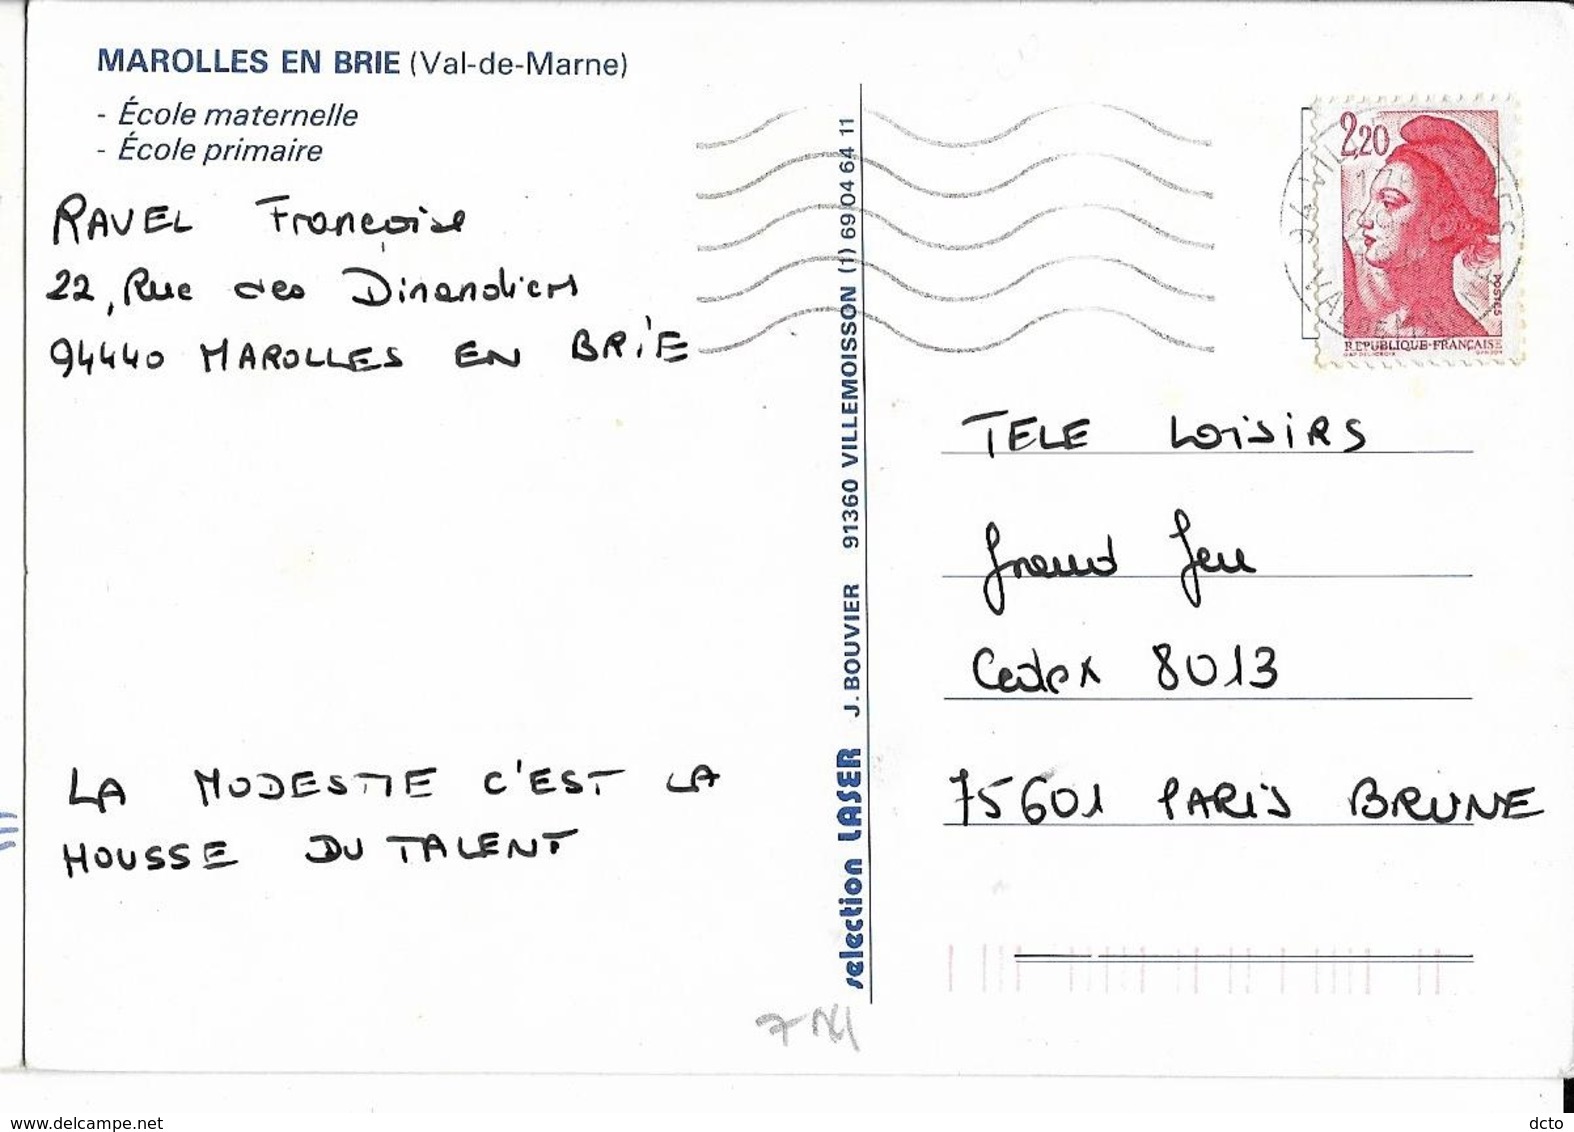 MAROLLES EN BRIE (Val-de-Marne)
- École maternelle
- École primaire
RAVEL Françoise
22, Rue des Dinandiers
94440 MAROLLES EN BRIE
LA MODESTIE C'EST LA
HOUSSE DU TALENT
selection LASER J. BOUVIER 91360 VILLEMOISSON (1) 69 04 64 11
2,20
POSTES
REPUBLIQUE-FRANÇAISE
TELE LOISIRS
Grand Jeu
Cedex 8013
75601 PARIS BRUNE
www.delcampe.net
dcto